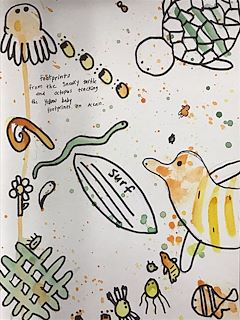 footprints
from the Sneaky turtle
and octopus tracking
the Yellow baby
footprints on ocean.
Surf